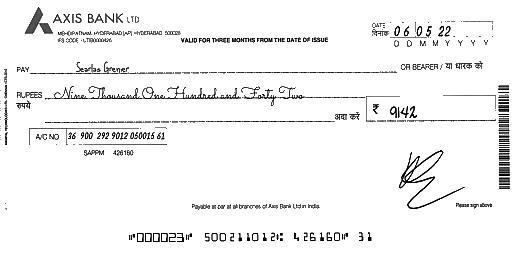 AXIS BANK LTD
MEHDIPATNAM, HYDERABAD [AP] - HYDERABAD 500028
IFS CODE - UTIB0000426
VALID FOR THREE MONTHS FROM THE DATE OF ISSUE
DATE
दिनांक 06 05 22
D D M M Y Y Y Y
PAY Searlas Grener OR BEARER / या धारक को
RUPEES Nine Thousand One Hundred and Forty Two
रुपये अदा करें ₹ 9142
A/C NO 36 900 292 9012 050015 61
SAPPM 426160
Payable at par at all branches of Axis Bank Ltd in India.
Please sign above
⑈000023⑈ 500211012⑆ 426160⑈ 31